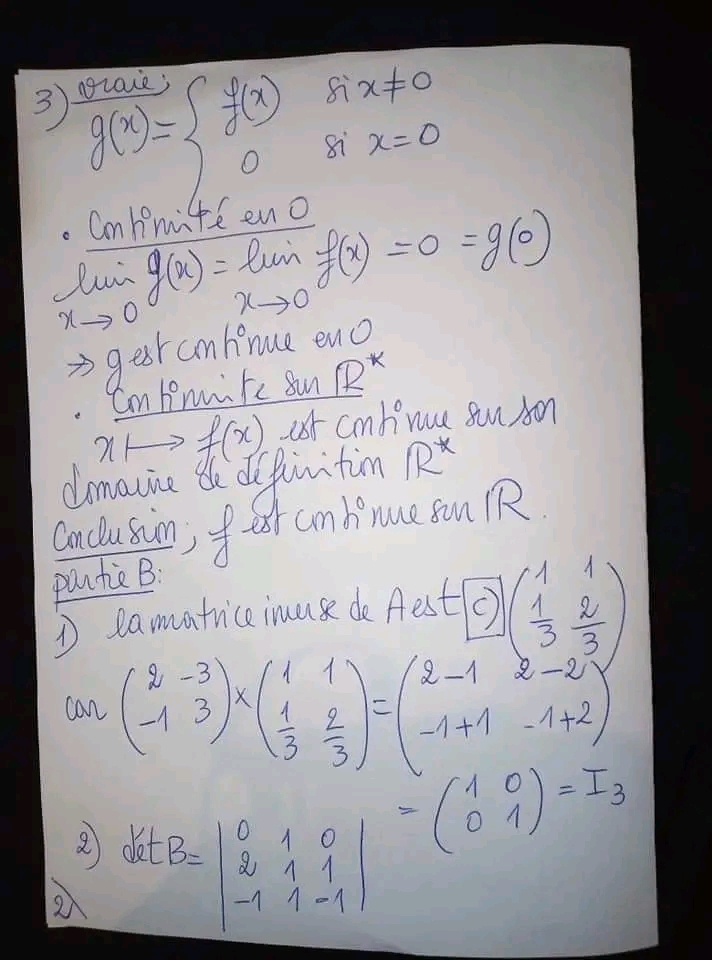 3) vraie;
g(x) = { f(x) si x ≠ 0
0 si x = 0
• Continuité en 0
lim g(x) = lim f(x) = 0 = g(0)
x→0 x→0
⇒ g est continue en 0
• Continuite sur ℝ*
x ⟼ f(x) est continue sur son
domaine de définition ℝ*
Conclusion; f est continue sur ℝ.
partie B:
1) la matrice inverse de A est c) (1 1
1/3 2/3)
car (2 -3
-1 3) × (1 1
1/3 2/3) = (2-1 2-2
-1+1 -1+2)
= (1 0
0 1) = I₃
2) dét B = |0 1 0
2 1 1
-1 1 -1|
2)